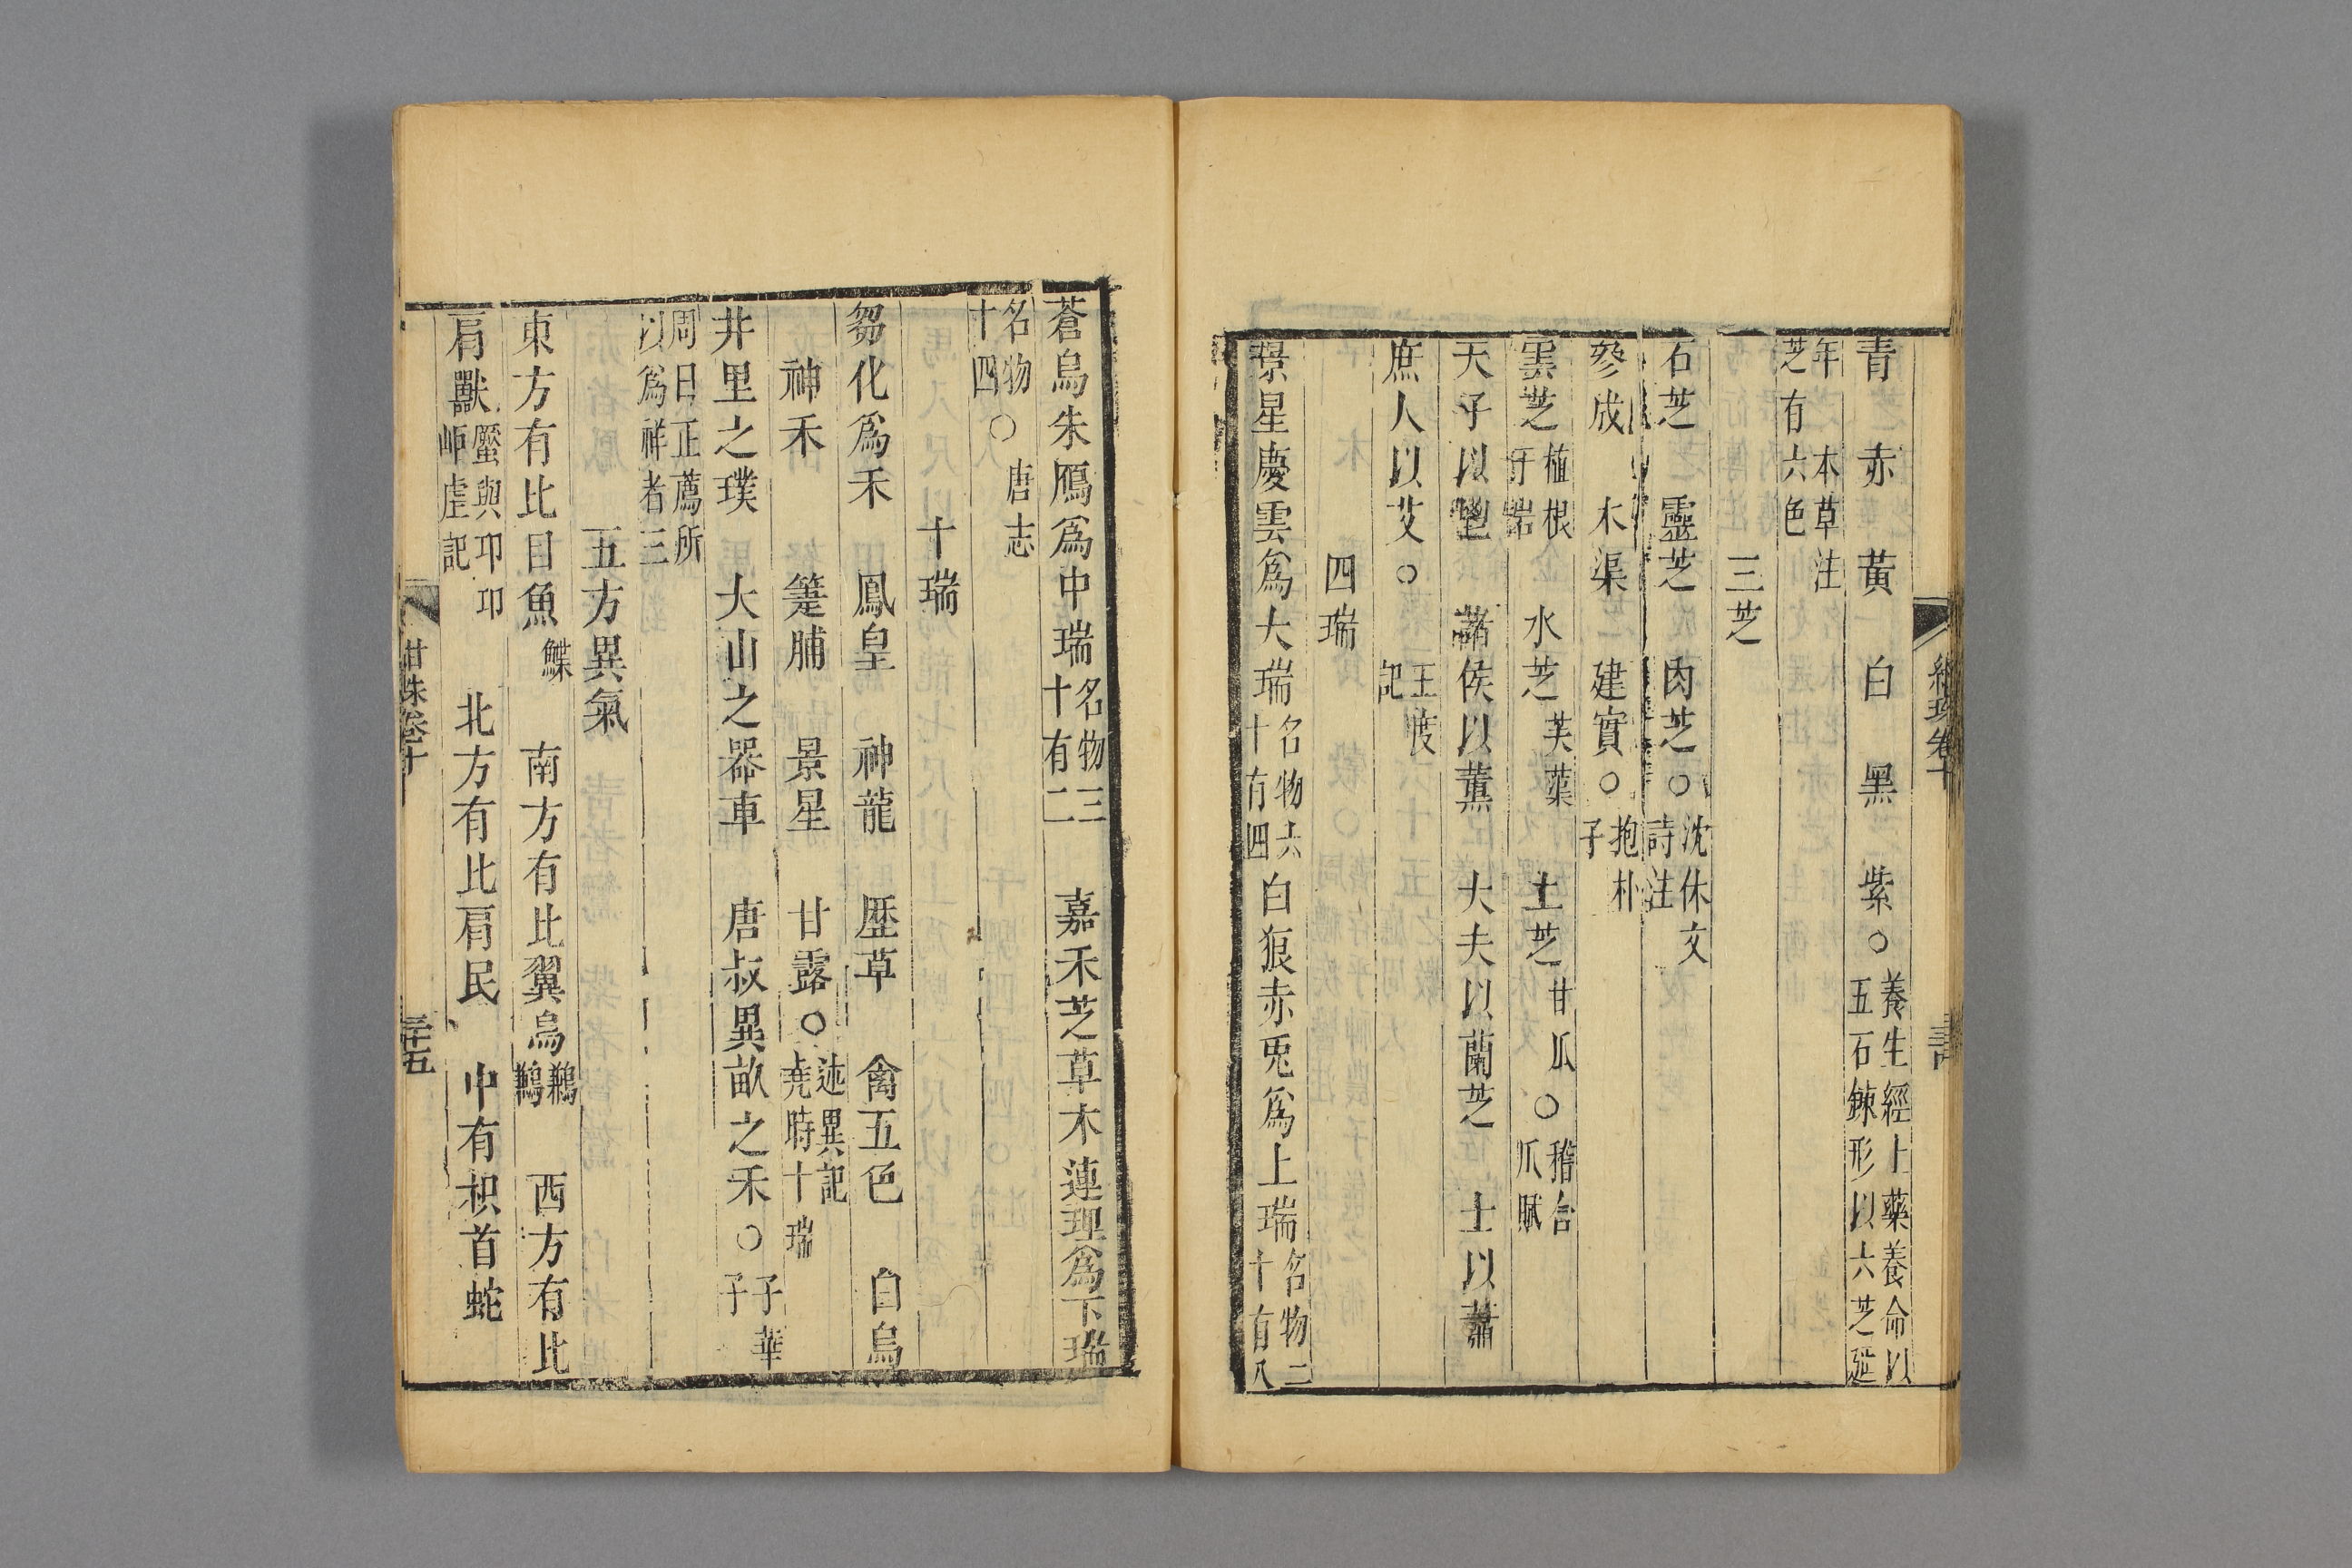 青　赤　黃　白　黑　紫○養生經上藥養命以五石鍊形以六芝延
年　本草注芝有六色
三芝
石芝　靈芝　肉芝○沈休文詩注
參成　木渠　建實○抱朴子
雲芝植根于岩　水芝芙蕖　土芝甘瓜○稽含瓜賦
天子以鬯　諸侯以薰　大夫以蘭芝　士以蕭
庶人以艾○王度記
四瑞
景星慶雲爲大瑞名物六十有四白狼赤兎爲上瑞名物二十有八
蒼烏朱鴈爲中瑞名物三十有二　嘉禾芝草木連理爲下瑞
名物十四○唐志
十瑞
芻化爲禾　鳳皇　神龍　歷草　禽五色　白烏
神禾　箑脯　景星　甘露○述異記堯時十瑞
井里之璞　大山之器車　唐叔異畝之禾○子華子
周日正薦所以爲祥者三
五方異氣
東方有比目魚鰈　南方有比翼烏鶼鶼　西方有比
肩獸蟨與卭卭岠虛記　北方有比肩民　中有枳首蛇
甘珠卷十
三十五